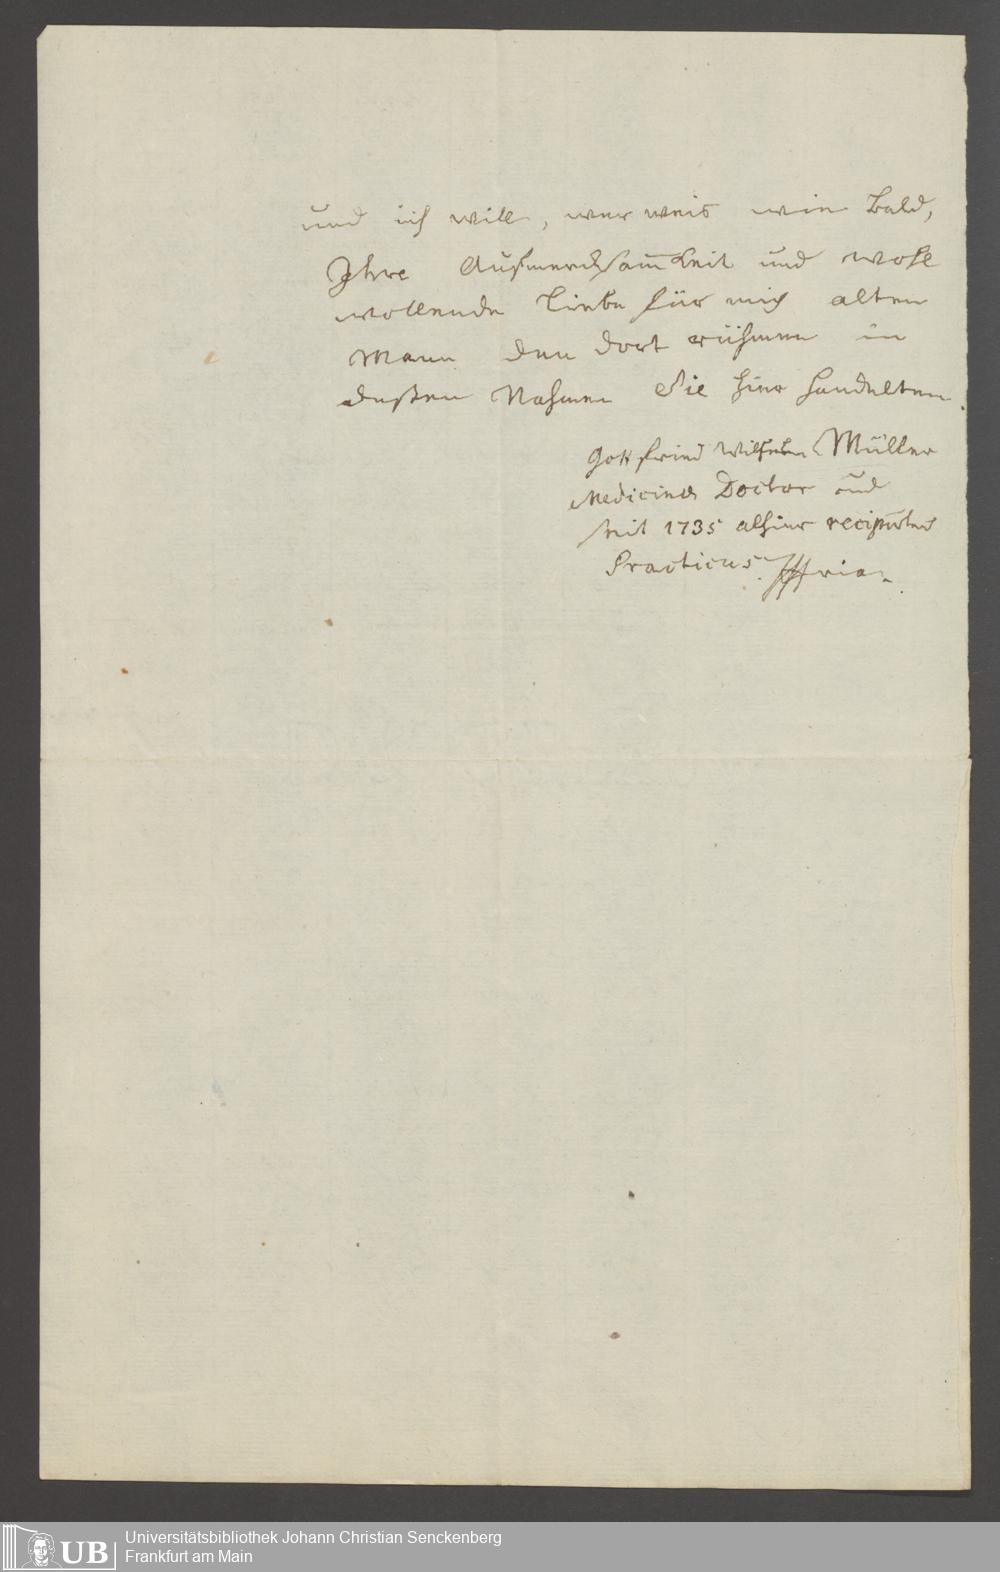 und ich will, wer weis wie bald,
Ihre Aufmercksam̅keit und wohl
wollende Liebe für mich alten
Mann den dort rühmen in
deßen Nahmen Sie hier handelten.
Gottfried Wilhelm Müller
Medicinæ Doctor und
seit 1735 alhier recipirter
Practicus.
UB
Universitätsbibliothek Johann Christian Senckenberg
Frankfurt am Main